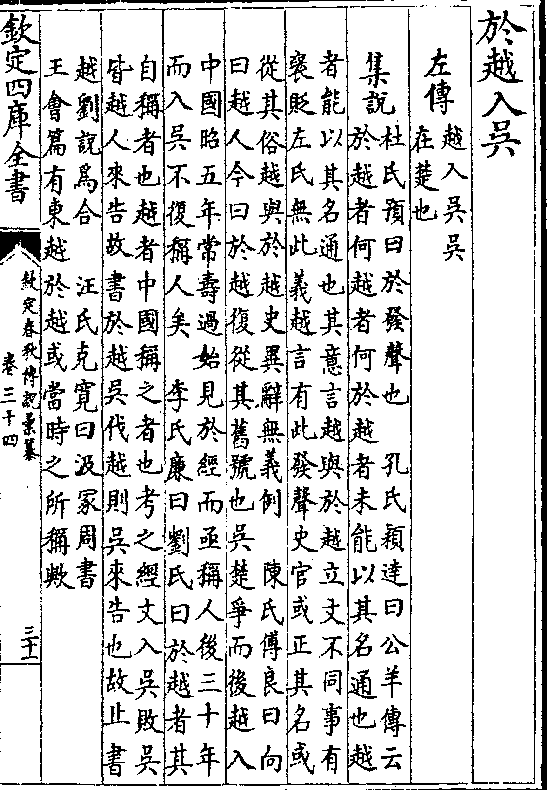 於越入吳
左傳
越入吳吳
在楚也
集説
杜氏預曰於發聲也　孔氏穎達曰公羊傳云
於越者何越者何於越者未能以其名通也越
者能以其名通也其意言越與於越立文不同事有
襃貶左氏無此義越言有此發聲史官或正其名或
從其俗越與於越史異辭無義例　陳氏傅良曰向
曰越人今曰於越復從其舊號也吳楚爭而後越入
中國昭五年常壽過始見於經而亟稱人後三十年
而入吳不復稱人矣　李氏廉曰劉氏曰於越者其
自稱者也越者中國稱之者也考之經文入吳敗吳
皆越人來告故書於越吳伐越則吳來告也故止書
越劉説爲合　汪氏克寛曰汲冢周書
王會篇有東越於越或當時之所稱歟
欽定四庫全書
欽定春秋傳説彙纂
卷三十四
三十一